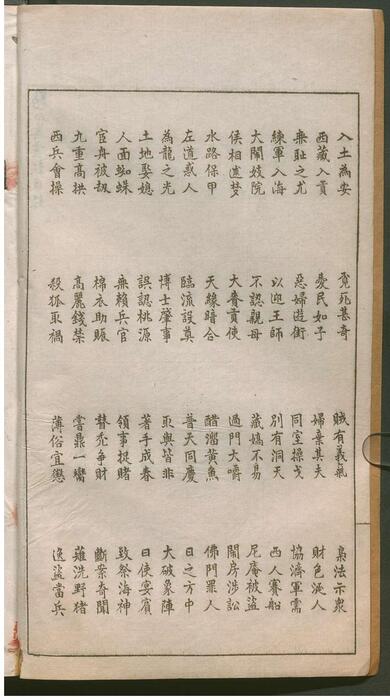 入土為安 覓死甚奇 賊有義氣 梟法示衆
西藏入貢 愛民如子 婦棄其夫 財色誤人
無恥之尤 惡婦遊街 同室操戈 協濟軍需
練軍入海 以迎王師 別有洞天 西人賽船
大鬧妓院 不認親母 藏嬌不易 尼庵被盜
侯相遺夢 大賚貢使 過門大嚼 鬧房涉訟
水路保甲 天緣暗合 醋溜黃魚 佛門罪人
左道惑人 臨流設奠 普天同慶 日之方中
為龍之光 博士肇事 取與皆非 大破象陣
土地娶媳 誤認桃源 著手成春 日使宴賓
人面蜘蛛 無賴兵官 領事捉賭 致祭海神
官舟被劫 棉衣助賑 替禿爭財 斷案奇聞
九重高拱 高麗錢禁 嘗鼎一臠 洗野豬
西兵會操 殺狐取禍 薄俗宜懲 逸盜當兵